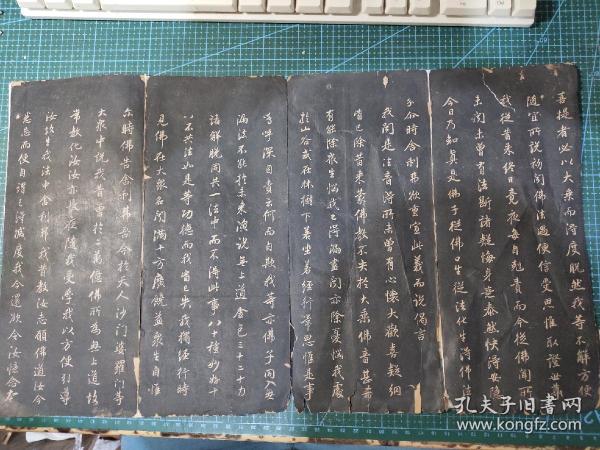 菩提者必以大乘而得度脫然我等不解方便
隨宜所說初聞佛法遇便信受思惟取證世尊
我從昔來終日竟夜每自剋責而今從佛聞所
未聞未曾有法斷諸疑悔身意泰然快得安隱
今日乃知真是佛子從佛口生從法化生得佛法
分尒時舍利弗欲重宣此義而說偈言
我聞是法音得所未曾有心懷大歡喜疑網
皆已除昔來蒙佛教不失於大乘佛音甚希
有能除衆生惱我已得漏盡聞亦除憂惱我處
於山谷或在林樹下若坐若經行常思惟是事
嗚呼深自責云何而自欺我等亦佛子同入无
漏法不能於未來演說无上道金色三十二十力
諸解脫同共一法中而不得此事八十種妙好十
八不共法如是等功德而我皆已失我獨經行時
見佛在大衆名聞滿十方廣饒益衆生自惟
尒時佛告舍利弗吾今於天人沙門婆羅門等
大衆中說我昔曾於二萬億佛所為無上道故
常教化汝汝亦長夜隨我受學我以方便引導
汝故生我法中舍利弗我昔教汝志願佛道汝今
悉忘而便自謂已得滅度我今還欲令汝憶念本
孔夫子旧书网
www.kongfz.com